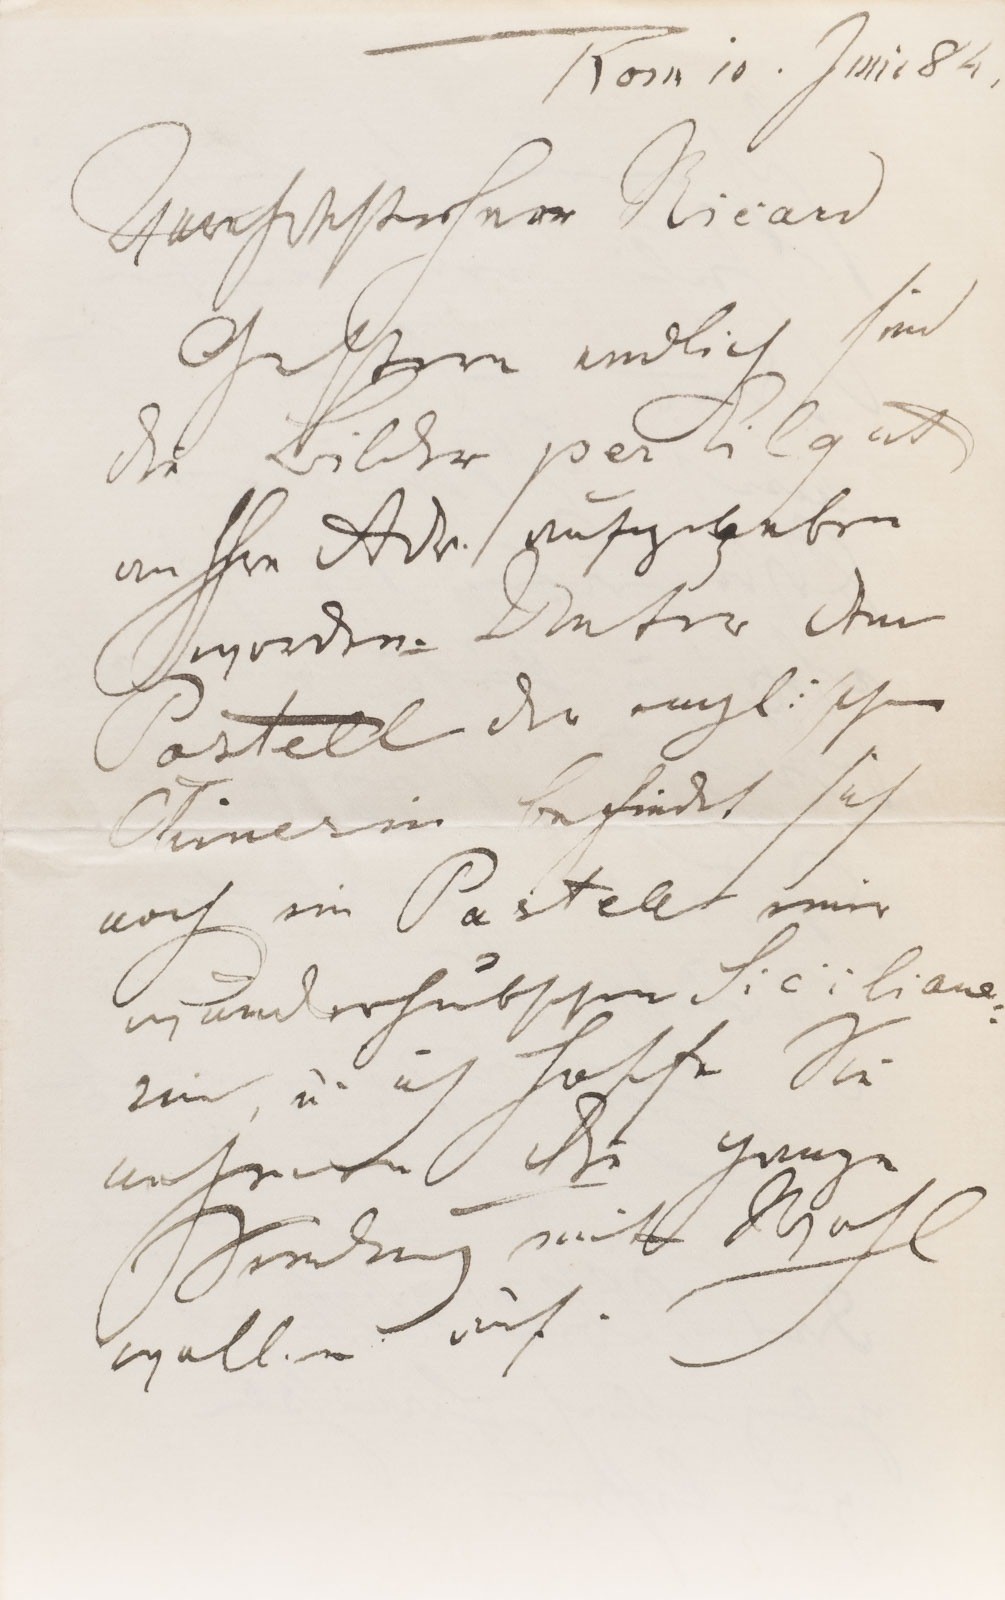 Rom 10. Juni 84.
Verehrtester Herr Ricard
Gestern endlich sind
die Bilder per Eilgut
an Ihre Adr. aufgegeben
worden. Unter dem
Pastell der englischen
befindet sich
noch ein Pastell einer
wunderhübschen Siciliane-
rin, u. ich hoffe Sie
nehmen die ganze
Sendung mit Wohl
wollen auf.